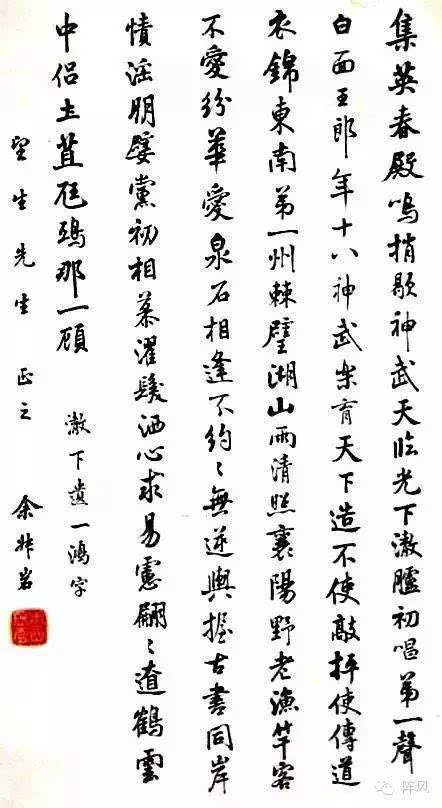 集英春殿鳴捎歇神武天臨光下澈臚初唱第一聲
白面王郎年十八神武樂育天下造不使敲抨使傳道
衣錦東南第一州棘璧湖山兩清照襄陽野老漁竿客
不愛紛華愛泉石相逢不約〻無逆輿握古書同岸
幘淫朋嬖黨初相慕濯髮洒心求易慮翩〻遼鶴雲
中侶土苴尪鴟那一顧 澈下遺一鴻字
望生先生 正之 余叔岩
阵风